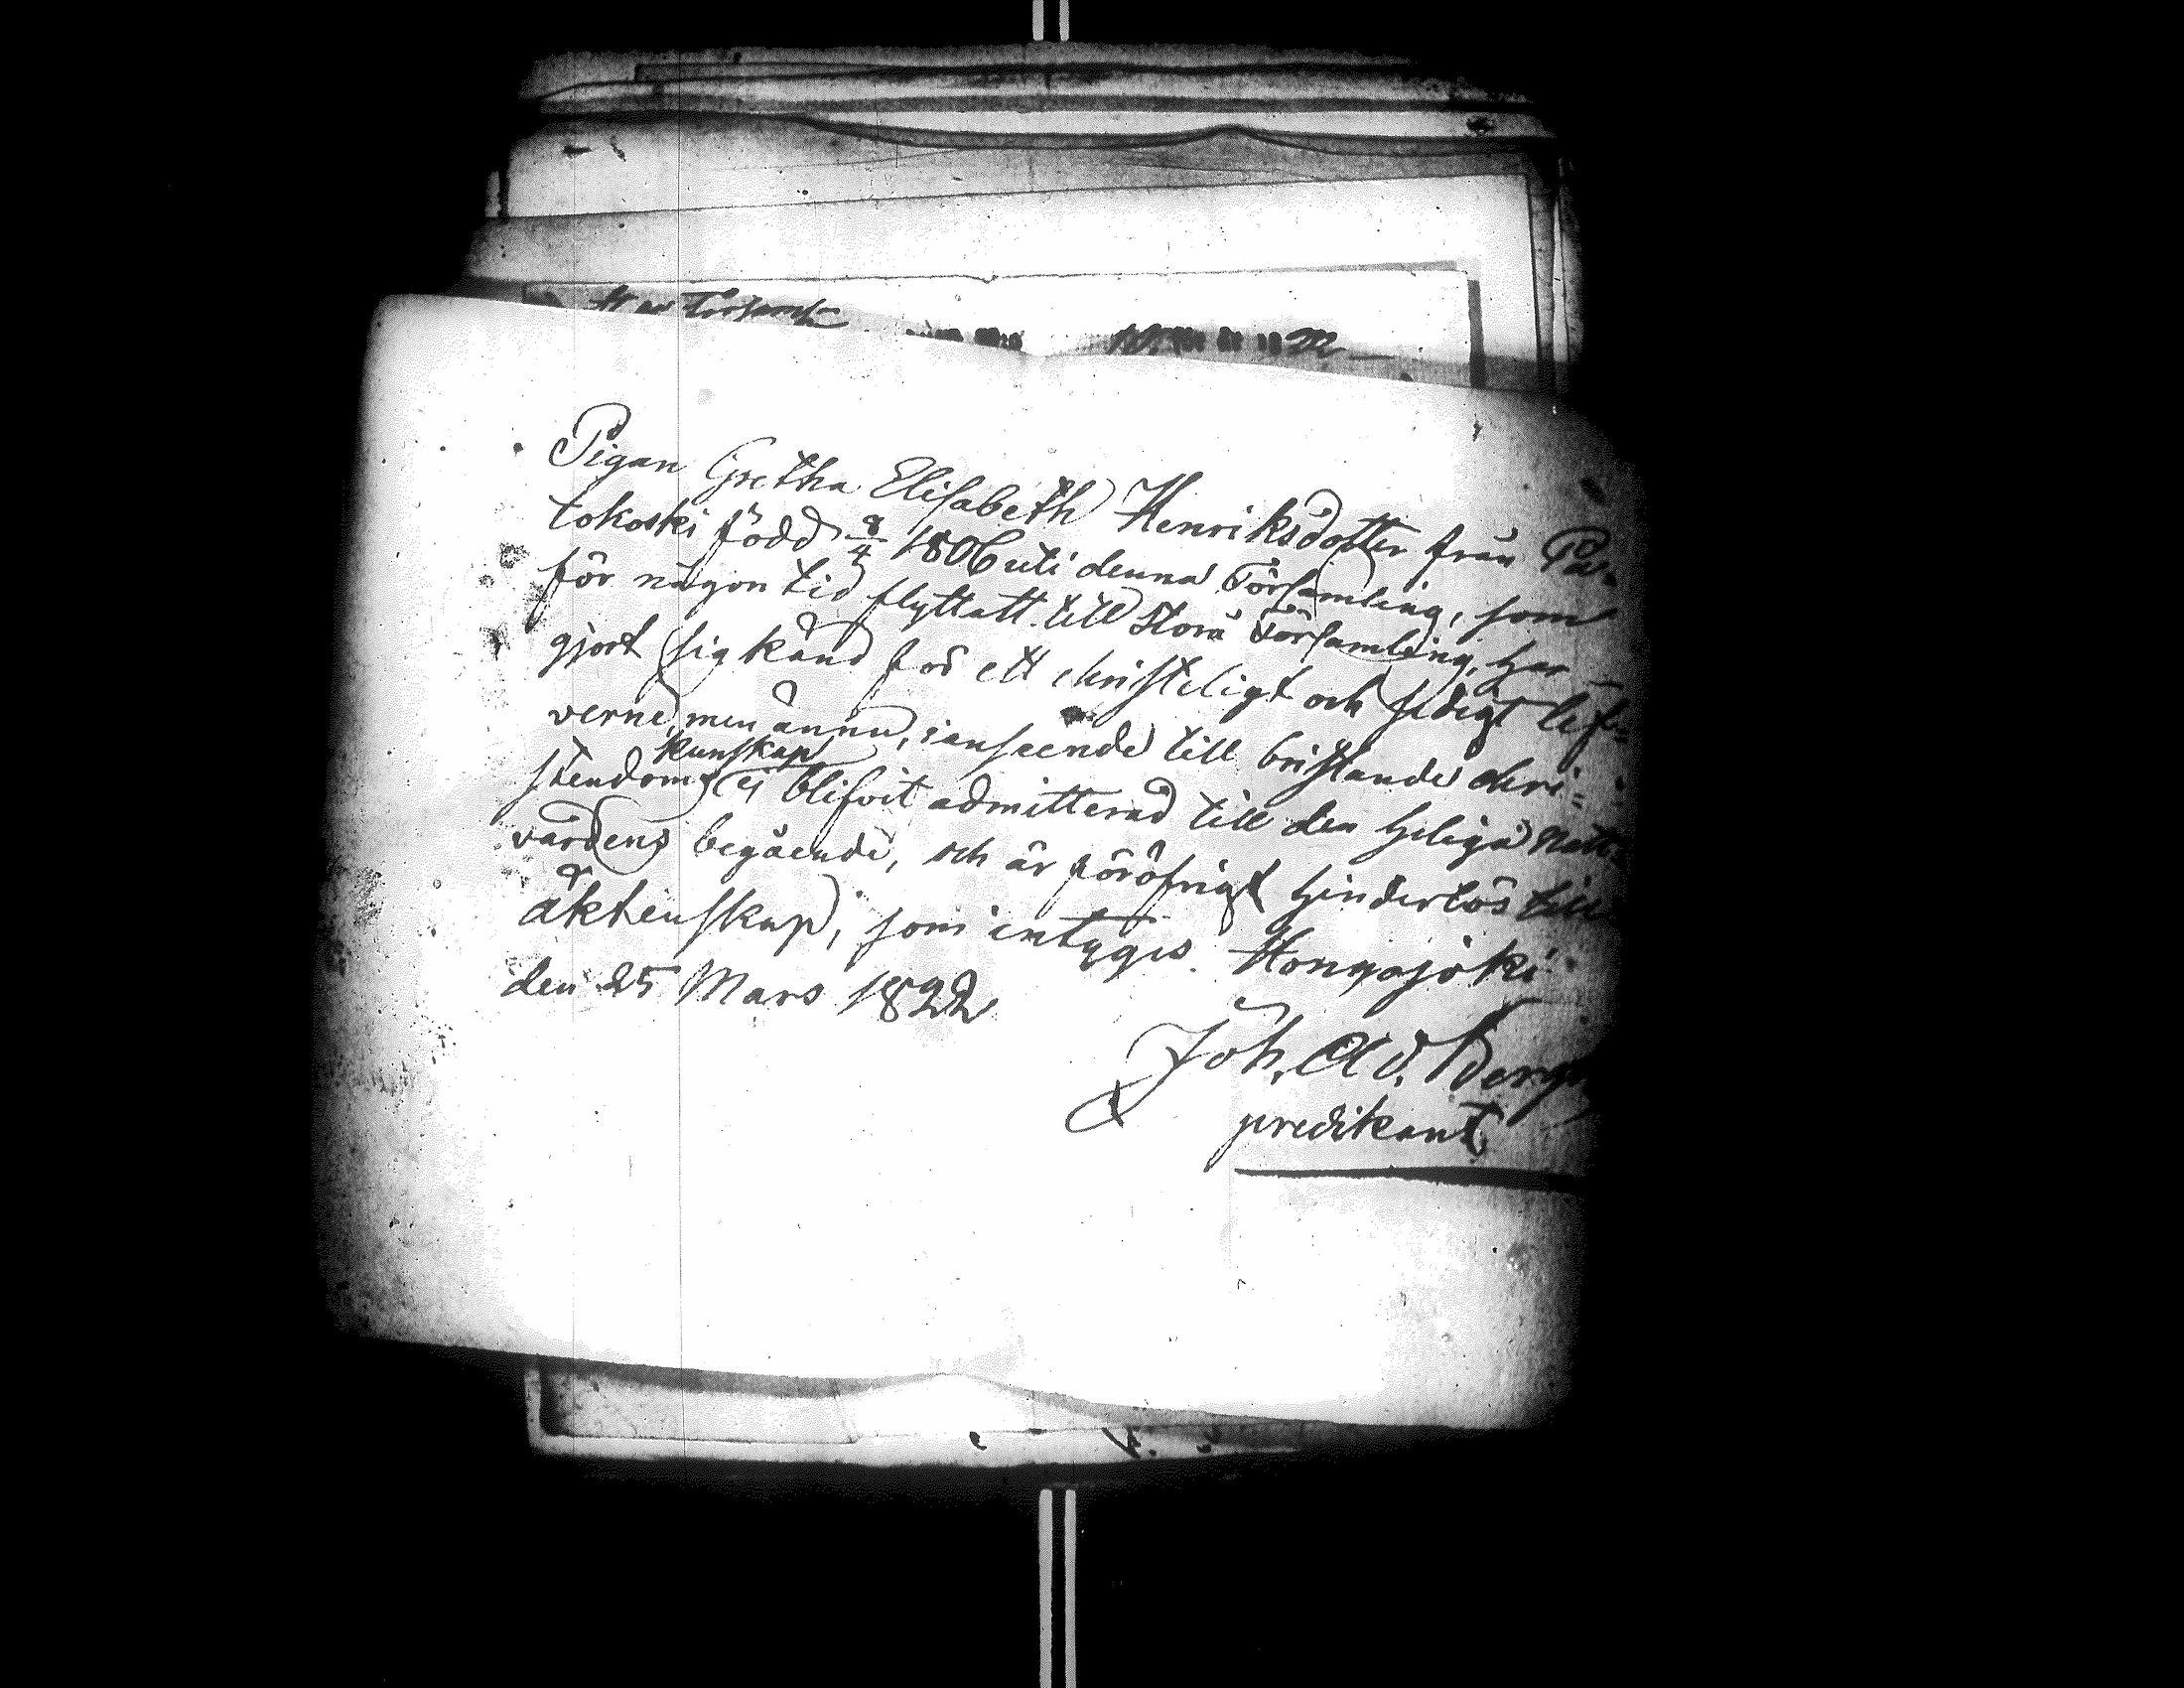 Pigan Gretha Elisabeth Henriksdotter från Pa-
tokoski född 8/4 1806 uti denna Församling, som
för någon tid flyttatt till Storå Församling, har
gjort sig känd för ett christeligt och sedigt lef-
verne, men ännu, i anseende till bristande chri-
kunskap
stendoms ej blifvit admitterad till den heliga Natt-
vardens begående, och är föröfrigt hinderlös till
äktenskap, som intygis. Hongojoki
den 25 Mars 1822
Joh. Ad. Berg
predikant